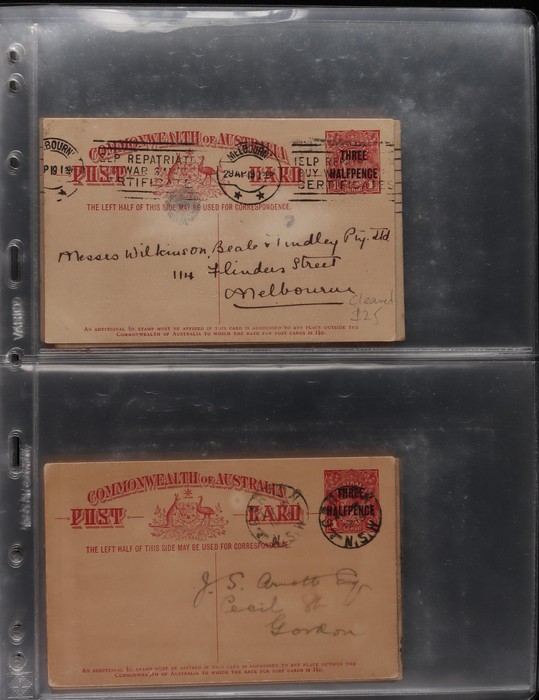 COMMONWEALTH OF AUSTRALIA
POST CARD
MELBOURNE
BUY WAR
CERTIFICATES
THREE
HALFPENCE
THE LEFT HALF OF THIS SIDE MAY BE USED FOR CORRESPONDENCE.
Messrs Wilkinson, Beale & Findley Pty. Ltd
114 Flinders Street
Melbourne
Cleaned
£25
AN ADDITIONAL ½D. STAMP MUST BE AFFIXED IF THIS CARD IS ADDRESSED TO ANY PLACE OUTSIDE THE
COMMONWEALTH OF AUSTRALIA TO WHICH THE RATE FOR POST CARDS IS 1½D.
VARIO
COMMONWEALTH OF AUSTRALIA
POST CARD
THREE
HALFPENCE
N.S.W
N.S.W
THE LEFT HALF OF THIS SIDE MAY BE USED FOR CORRESPONDENCE.
J. S. Arnott Esq
Cecil St
Gordon
AN ADDITIONAL ½D. STAMP MUST BE AFFIXED IF THIS CARD IS ADDRESSED TO ANY PLACE OUTSIDE THE
COMMONWEALTH OF AUSTRALIA TO WHICH THE RATE FOR POST CARDS IS 1½D.